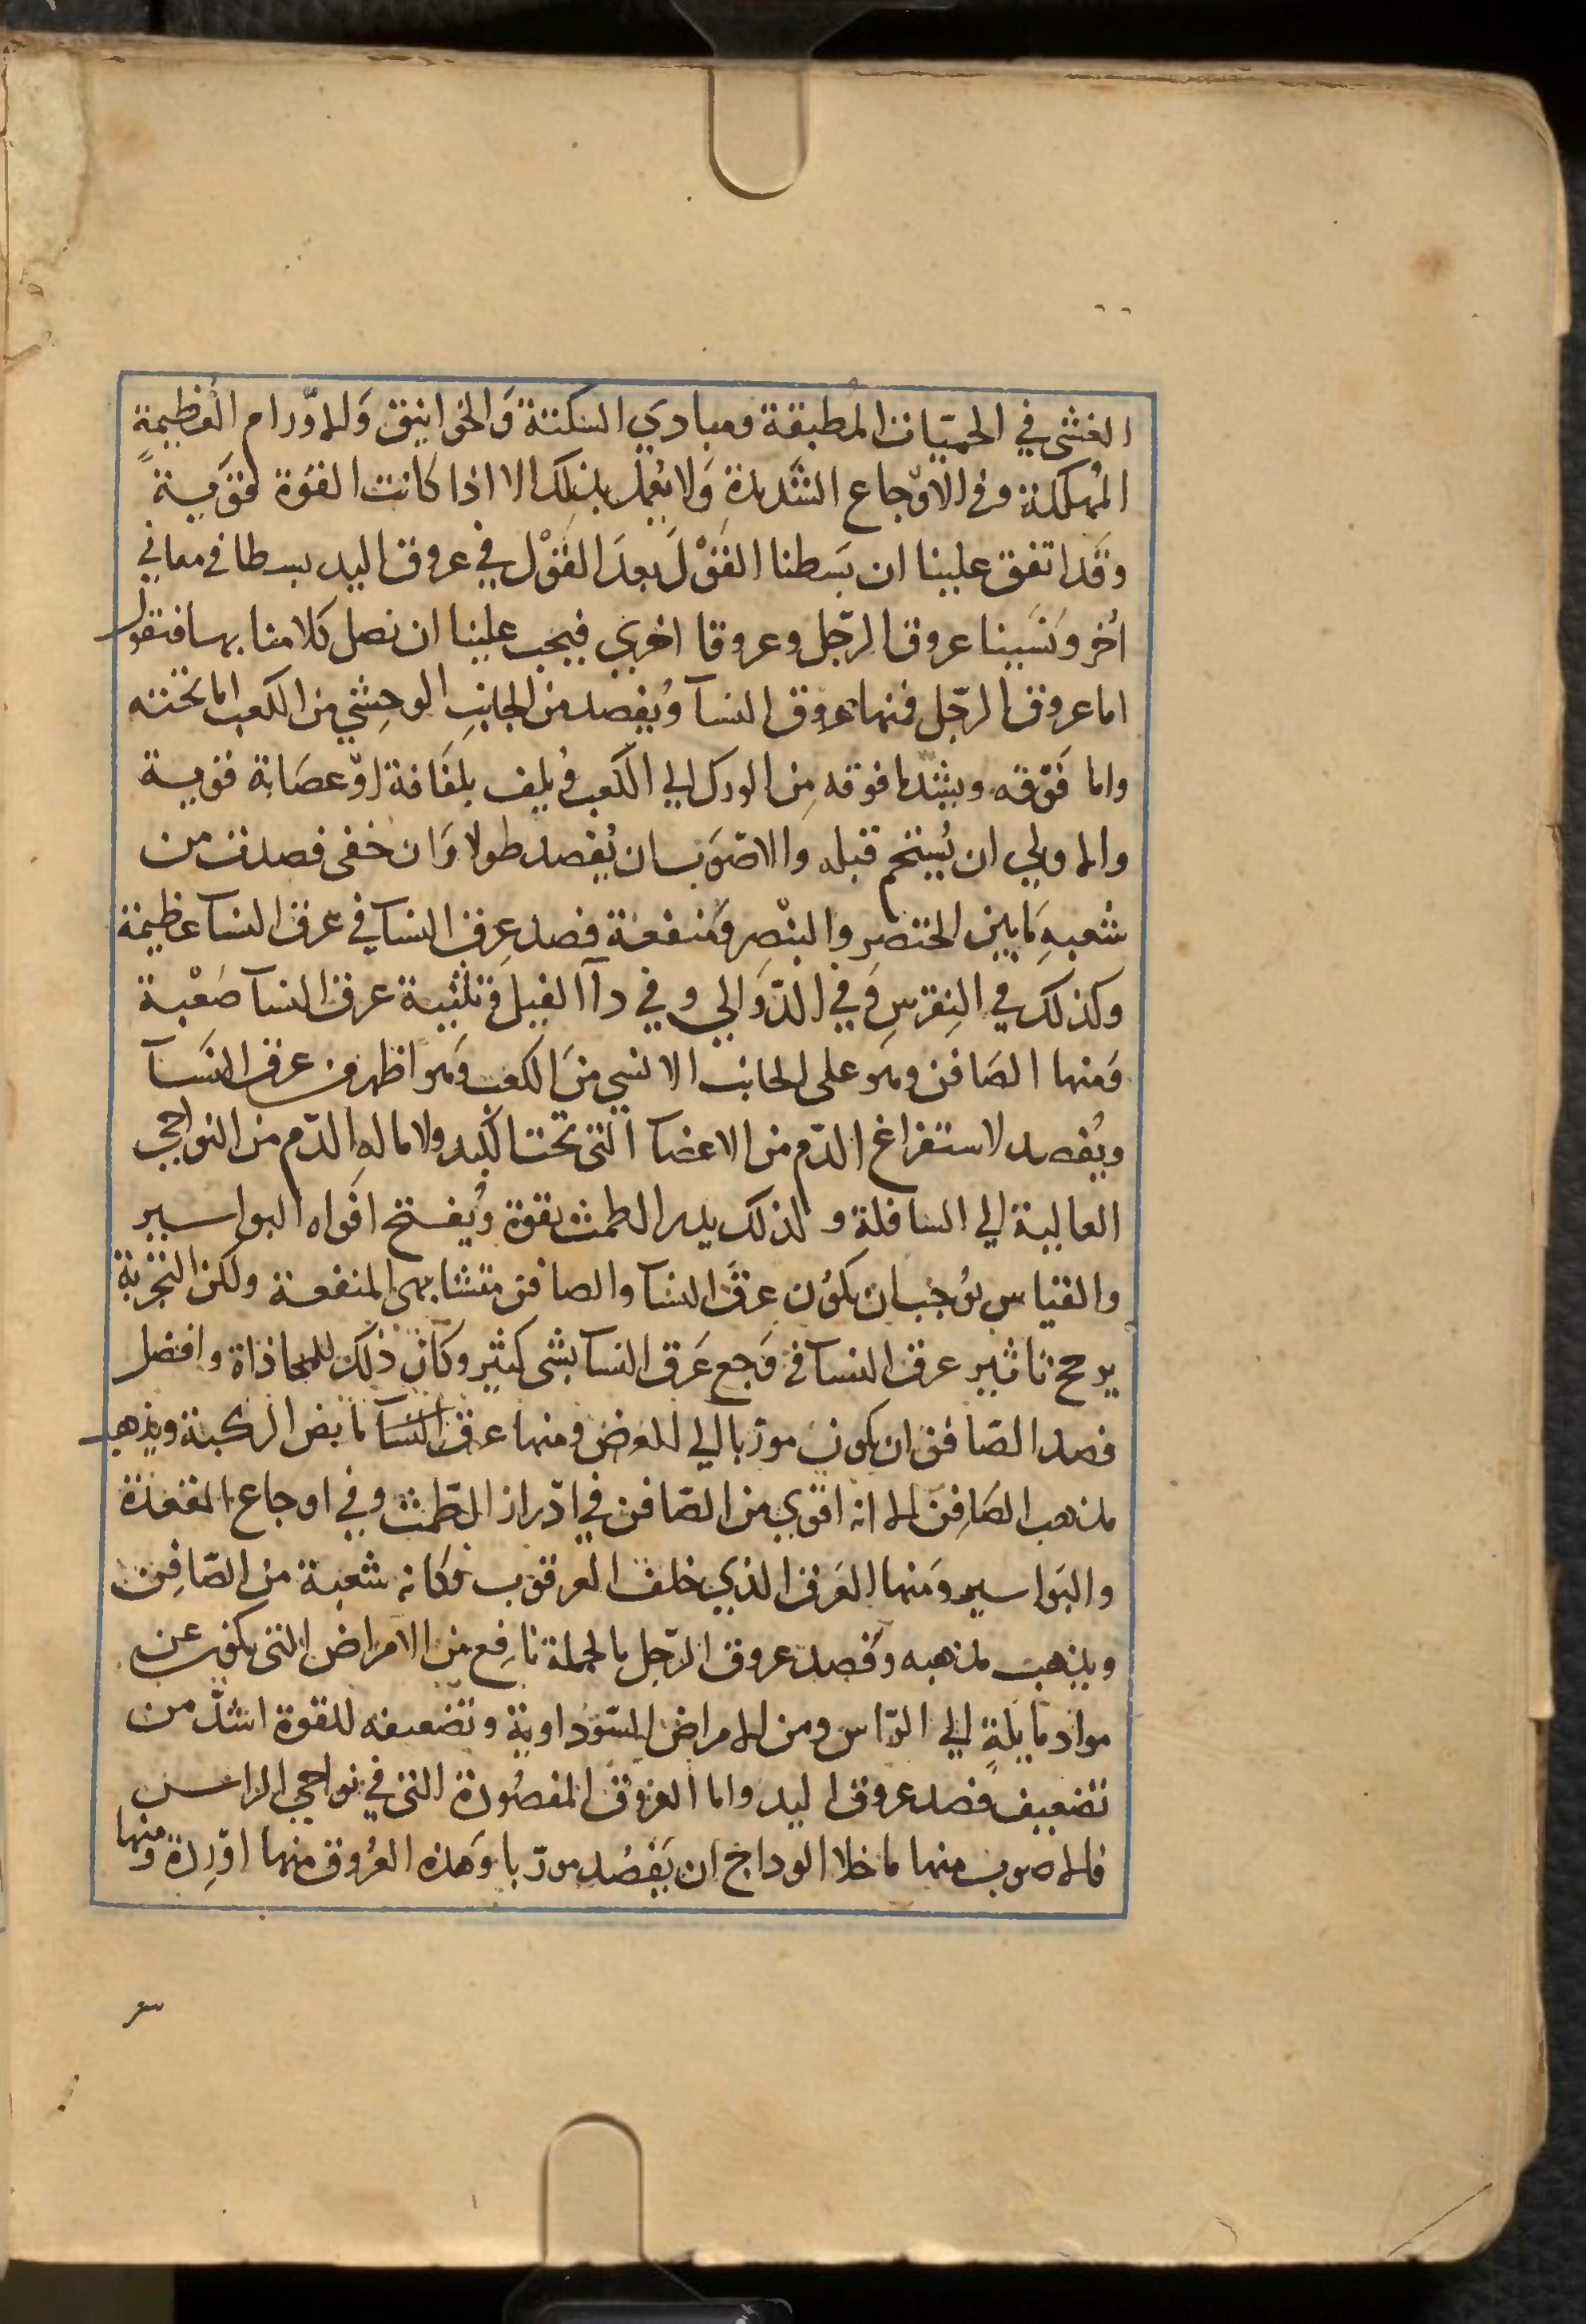 الغشى في الحميات المطبقة ومبادي السكتة وَالخوانيق وَالاوّرام العَظيمةٍ
المُهلكة وفي الاوّجاع الشَديدةِ وَلا يُعمل بذلِك الا اذا كانت القوَة قوَية
وقَد اتفق علينا ان بَسطنا القَوْلَ بعدَ القَوْل في عروق اليد بسطا في معاني
اُخر ونَسَينا عروق الرّجل وعروقا اخري فيجب علينا ان نصل كلامنا بها فنقول
اما عروق الرّجل فمنها عروق النسآ ويُفصد من الجانبِ الوحِشي من الكعب اما تحته
واما فَوّقه ويشد ما فوقه مِن الورك الي الكعب وُيلف بلفَافة اوّ عصَابة قوية
والاولي ان يُستحم قبله والاصّوَب ان يُفصد طولا وَان خفى فصدت من
شعبهِ مَا بين الخنصر والبنْصِر وَمنفعة فصد عِرق النسآ في عرق النسآ عظيمة
وكذلك في النِقرسِ وَفي الدّوَالي وفي دآ الفيل وَتثنية عرق النسآ صَعْبة
وَمنها الصَافن وهو على الجانب الانسي منَ الكعب وَهو اظهر من عرق النَسآ
ويُفصد لاستفراغ الدّم من الاعضآ التى تحت الكبد ولامالهِ الدّم من النواحي
العالية الي السافلة ولذلك يدر الطمث بقوة وُيفتح افَواه البواسير
والقياس يوُجب ان يكوُن عرقَ النسآ والصافن متشابهى المنفعة ولكن التجْربة
يرجح تاثير عرق النسآ في وَجع عَرق النسآ بشى كثير وكان ذلك للمحاذاة وافضل
فصد الصّافن ان يكون مورّبا الي العرض ومنها عرق النسَآ مابض الركبة ويذهب
مذهب الصَافِن الا انه اقوي من الصّافن في ادّرار الطّمث وفي اوجاع المقعدة
والبَواسير ومَنها العَرق الذي خلف العرقوَب وكانه شعبة من الصّافِن
ويذهب مذهبه وَفصد عروق الرّجل بالجملة نافِع من الامراض التى يكون عن
مواد مايلةٍ الي الرّاس ومن الامراض السّوَداوية وتضعيفه للقوة اشدّ من
تضعيف فصد عروق اليد واما العروَق المفصُودة التى في نواحي الراس
فالاصوب منها ما خلا الوداج ان يَفصُد مورّبا وَهذه العُروق منها اوّرِدة ومنها